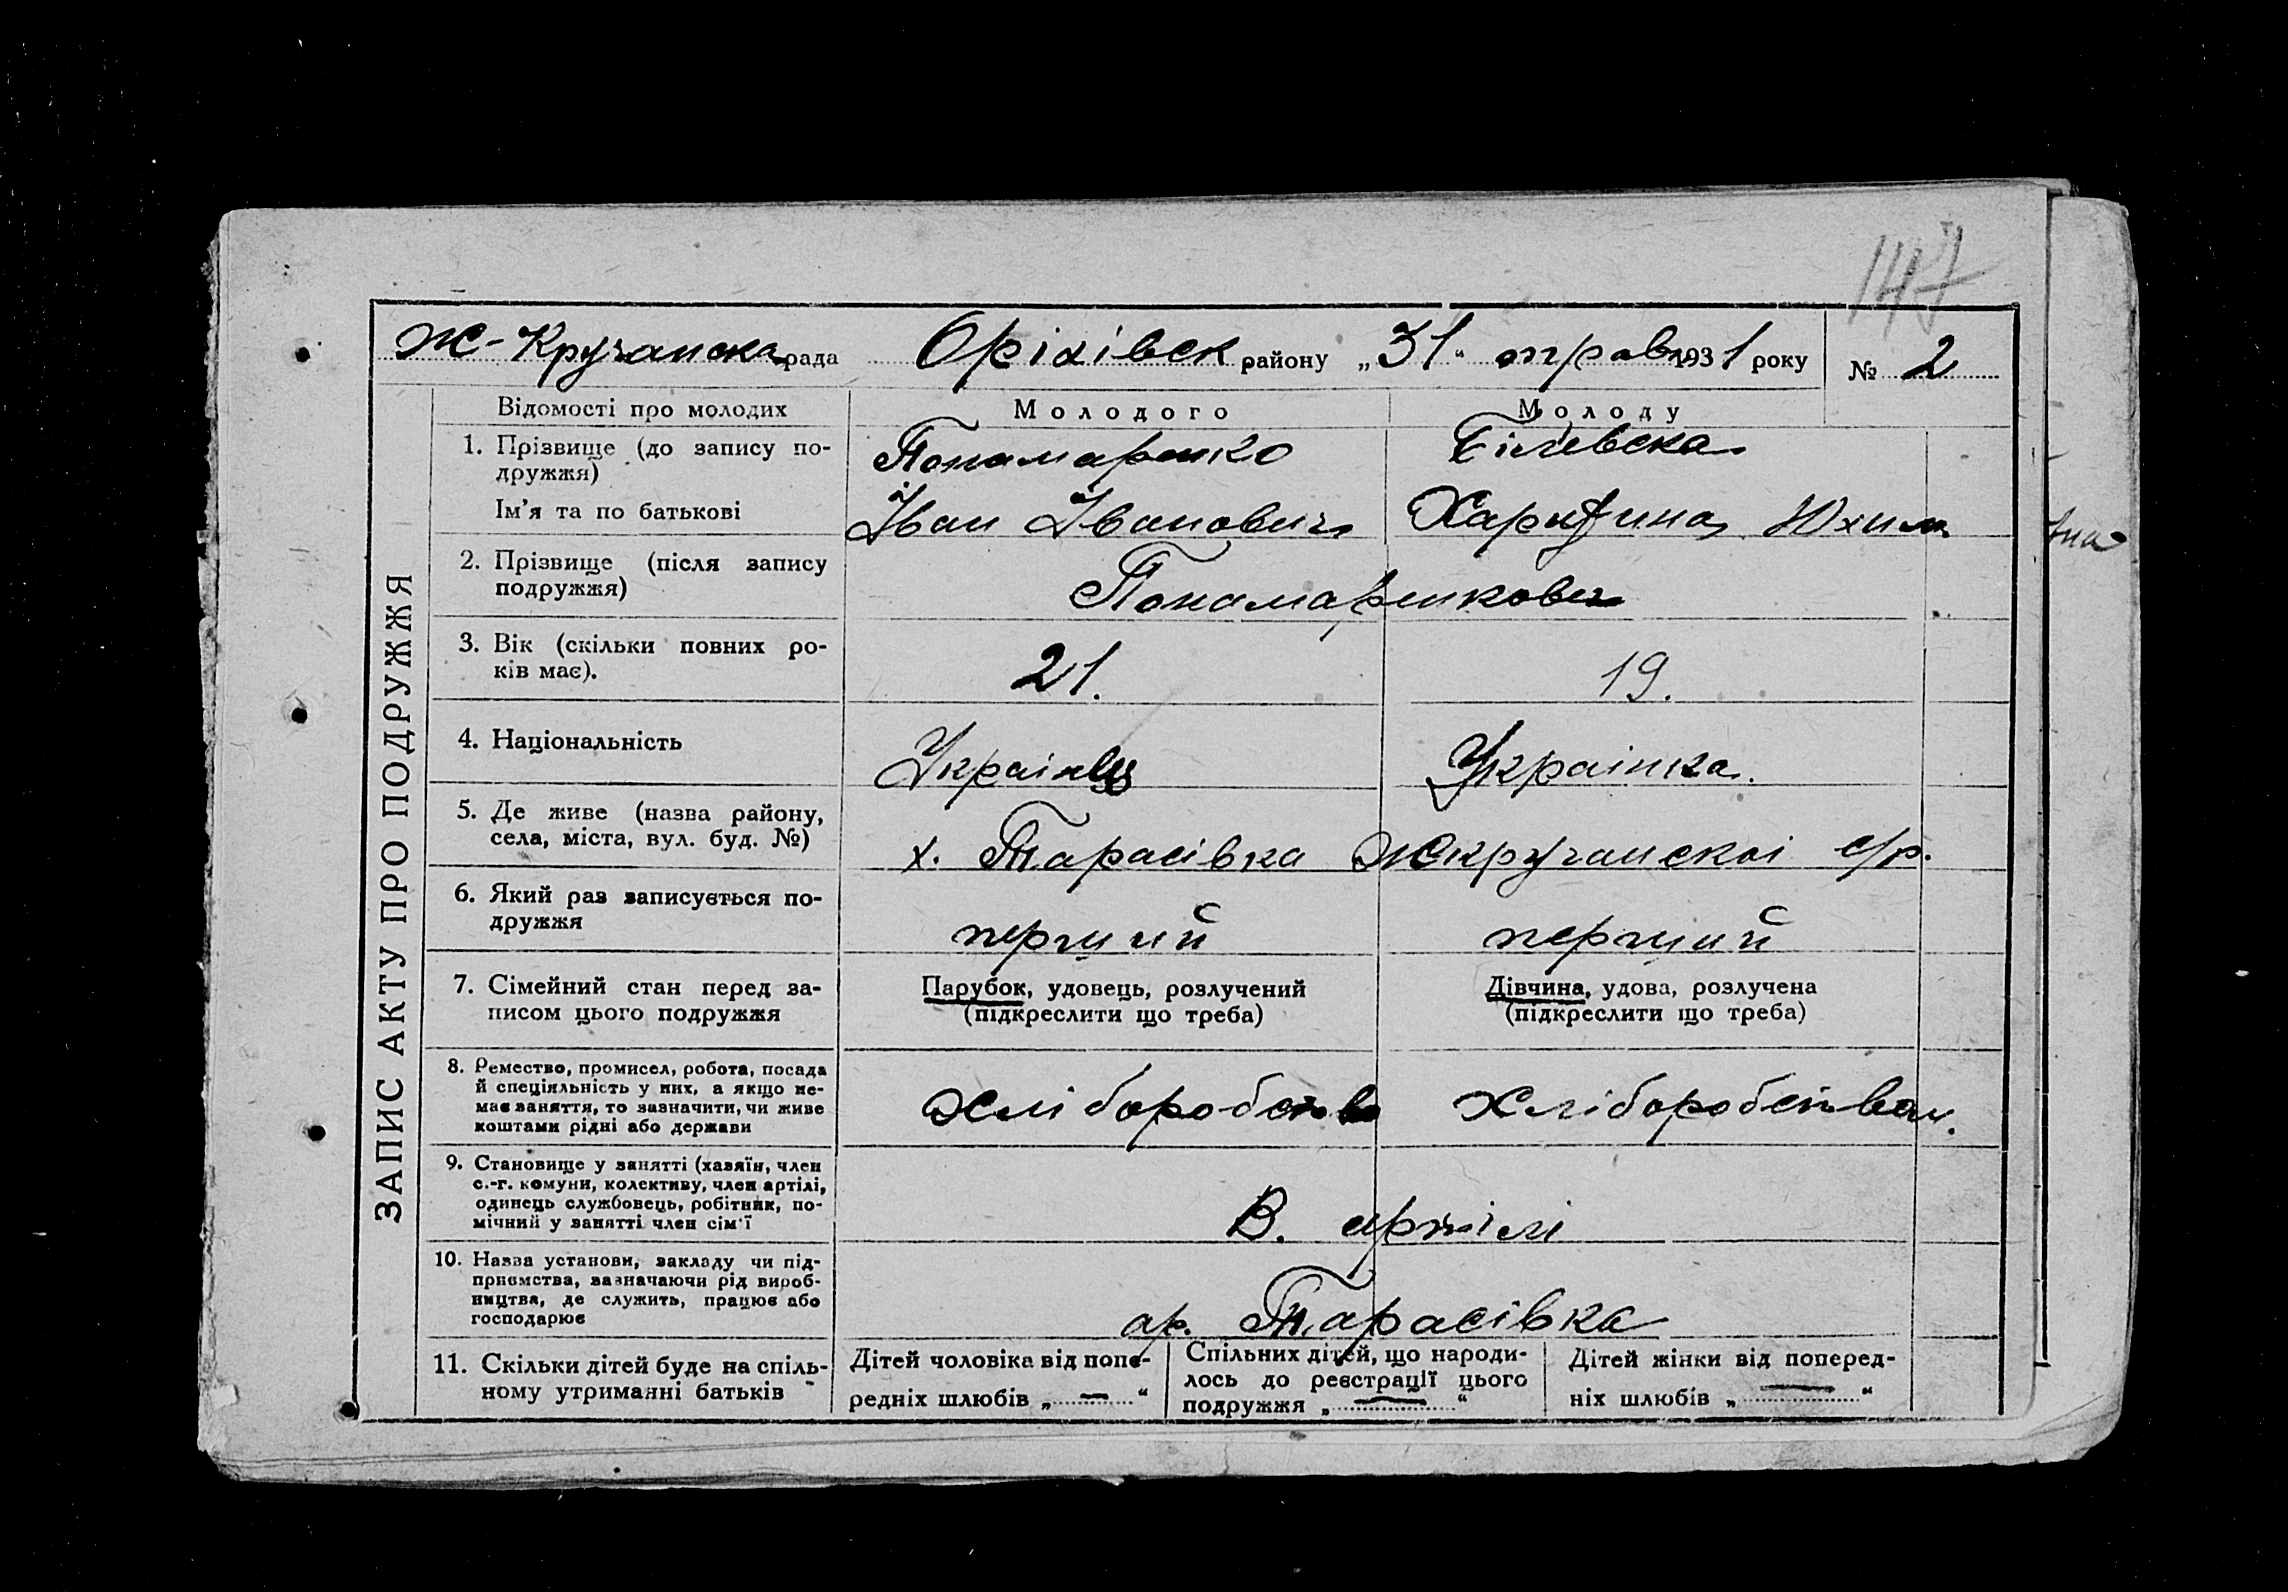 147
Ж-Кручанска рада Оріхівськ району „31“ трав 1931 року № 2
ЗАПИС АКТУ ПРО ПОДРУЖЖЯ
Відомості про молодих Молодого Молоду
1. Прізвище (до запису по-
дружжя) Понамаренко Білевска
Ім'я та по батькові Іван Іванович Харитина Юхим
2. Прізвище (після запису
подружжя) Понамаренкович
3. Вік (скільки повних ро-
ків має). 21. 19.
4. Національність Українець Українка.
5. Де живе (назва району,
села, міста, вул. буд. №) х. Тарасівка Жкручанскоі с/р.
6. Який раз записується по-
дружжя перший перший
7. Сімейний стан перед за-
писом цього подружжя
Парубок, удовець, розлучений
(підкреслити що треба)
Дівчина, удова, розлучена
(підкреслити що треба)
8. Ремество, промисел, робота, посада
й спеціяльність у них, а якщо не-
має заняття, то зазначити, чи живе
коштами рідні або держави
хліборобство хліборобством.
9. Становище у занятті (хазяїн, член
с.-г. комуни, колективу, член артілі,
одинець службовець, робітник, по-
мічний у занятті член сім'ї
В. артілі
10. Назва установи, закладу чи під-
приємства, зазначаючи рід вироб-
ництва, де служить, працює або
господарює
ар. Тарасівка
11. Скільки дітей буде на спіль-
ному утриманні батьків
Дітей чоловіка від попе-
редніх шлюбів „ — “
Спільних дітей, що народи-
лось до реєстрації цього
подружжя „ — “
Дітей жінки від поперед-
ніх шлюбів „ — “